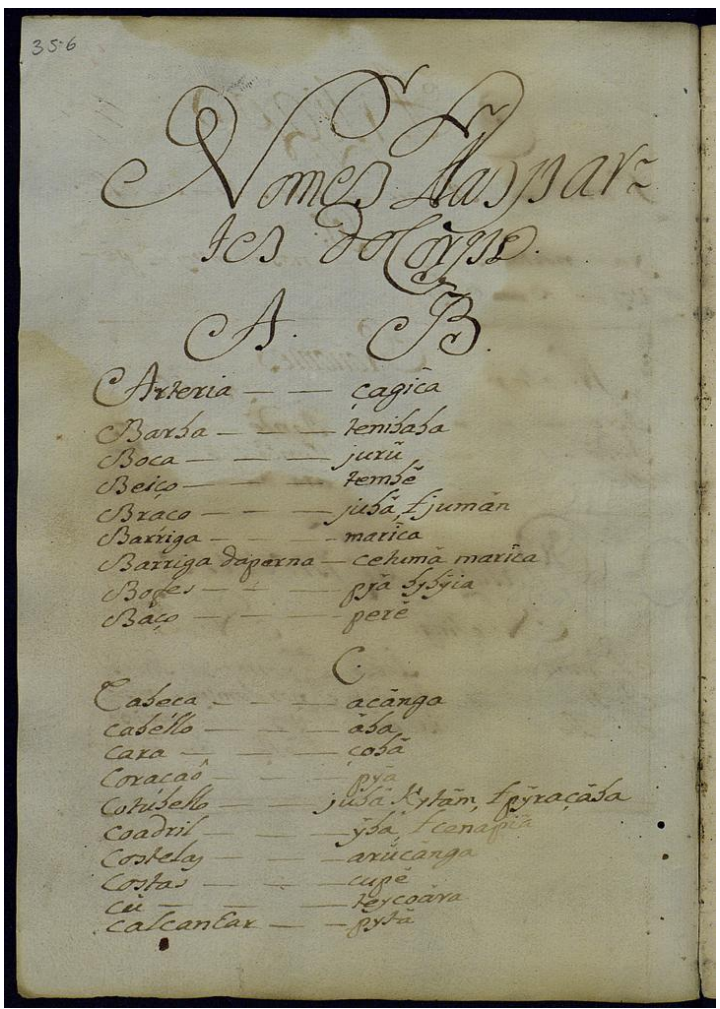 356
Nomes das par~
tes do Corpo.
A. B.
Arteria — — — çagicâ
Barba — — — tenibaba
Boca — — — jurû
Beiço — — — tembê
Braço — — — jubâ, t jumân
Barriga — — — marîca
Barriga daperna — cetumâ marîca
Bofes — — — pŷâ bybŷia
Báço — — — perê
C.
Cabeca — — — acânga
cabéllo — — — âba
cara — — — çobâ
Coraçaô — — — pŷa
Cotúbello — — — jubâ kytâm, t pŷraçâba
coadril — — — ŷbâ, t cenapiâ
Costelas — — — arûcânga
Costas — — — cupê
cû — — — teycoâra
calcanEar — — pytâ